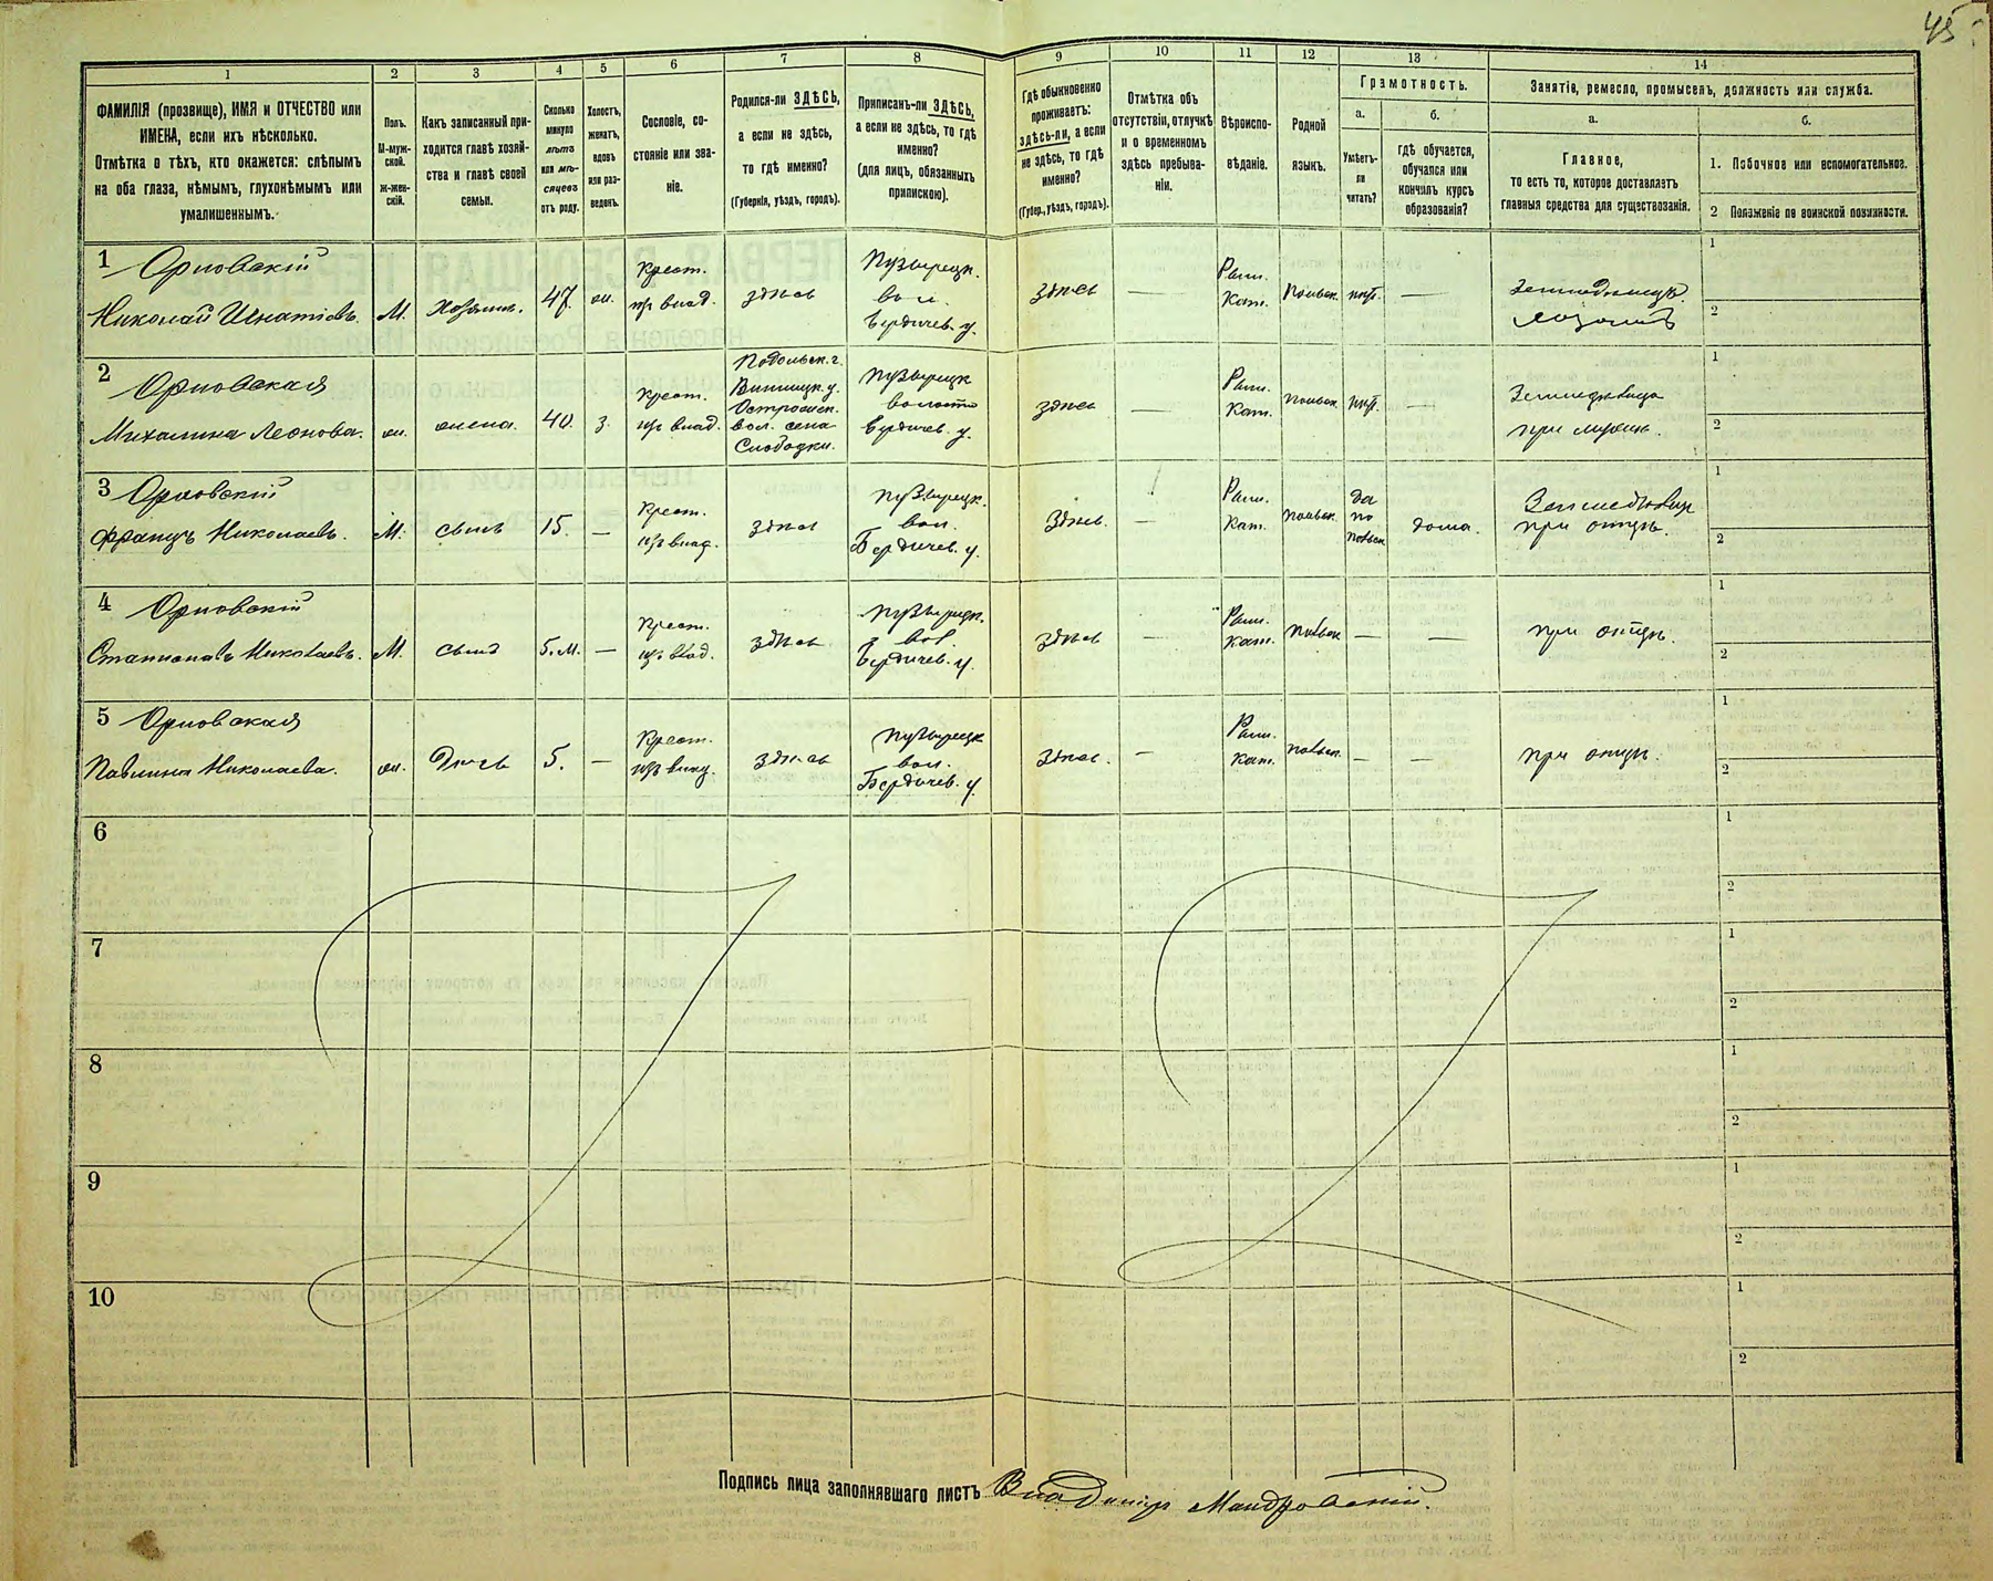 45
1
2
3
4
5
6
7
8
9
10
11
12
13
14
ФАМИЛІЯ (прозвище), ИМЯ и ОТЧЕСТВО или
ИМЕНА, если ихъ нѣсколько.
Отмѣтка о тѣхъ, кто окажется: слѣпымъ
на оба глаза, нѣмымъ, глухонѣмымъ или
умалишеннымъ.
Полъ.
М-муж-
ской.
Ж-жен-
скій.
Какъ записанный при-
ходится главѣ хозяй-
ства и главѣ своей
семьи.
Сколько
минуло
лѣтъ
или мѣ-
сяцевъ
отъ роду.
Холостъ,
женатъ,
вдовъ
или раз-
веденъ.
Сословіе, со-
стояніе или зва-
ніе.
Родился-ли ЗДѢСЬ,
а если не здѣсь,
то гдѣ именно?
(Губернія, уѣздъ, городъ).
Приписанъ-ли ЗДѢСЬ,
а если не здѣсь, то гдѣ
именно?
(для лицъ, обязанныхъ
припискою).
Гдѣ обыкновенно
проживаетъ:
здѣсь-ли, а если
не здѣсь, то гдѣ
именно?
(Губер., уѣздъ, городъ).
Отмѣтка объ
отсутствіи, отлучкѣ
и о временномъ
здѣсь пребыва-
ніи.
Вѣроиспо-
вѣданіе.
Родной
языкъ.
Грамотность.
а.
Умѣетъ-
ли
читать?
б.
гдѣ обучается,
обучался или
кончилъ курсъ
образованія?
Занятіе, ремесло, промыселъ, должность или служба.
а.
Главное,
то есть то, которое доставляетъ
главныя средства для существованія.
б.
1. Побочное или вспомогательное.
2 Положеніе по воинской повинности.
1 Орловскій
Николай Игнатіевъ.
М.
Хозяинъ.
47.
ж.
Крест.
изъ влад.
здѣсь
Пузырецк.
вол.
Бердичев. у.
здѣсь
—
Рим.
Кат.
Польск.
нѣт.
—
Земледѣлецъ.
хозяинъ
1
2
2 Орловская
Михалина Леонова.
ж.
жена.
40.
з.
Крест.
изъ влад.
Подольск. г.
Винницк. у.
вол. села
Слободки.
Пузырецк
волости
Бердичев. у.
здѣсь
—
Рим.
Кат.
польск.
нѣт.
—
при мужѣ.
1
2
3 Орловскій
Францъ Николаевъ.
М.
сынъ
15.
—
Крест.
изъ влад.
здѣсь
Пузырецк.
вол.
Бердичев. у.
здѣсь.
—
Рим.
Кат.
польск.
да
по
польск.
дома.
при отцѣ.
1
2
4 Орловскій
Станиславъ Николаевъ.
М.
сынъ
5. м.
—
Крест.
изъ влад.
здѣсь
Пузырецк.
вол.
Бердичев. у.
здѣсь
—
Рим.
Кат.
польск
—
—
при отцѣ.
1
2
5 Орловская
Павлина Николаева.
ж.
Дочь
5.
—
Крест.
изъ влад.
здѣсь
Пузырецк
вол.
Бердичев. у.
здѣсь.
—
Рим.
Кат.
польск.
—
—
при отцѣ.
1
2
6
1
2
7
1
2
8
1
2
9
1
2
10
1
2
Подпись лица заполнявшаго листъ Владиміръ Мандровскій.